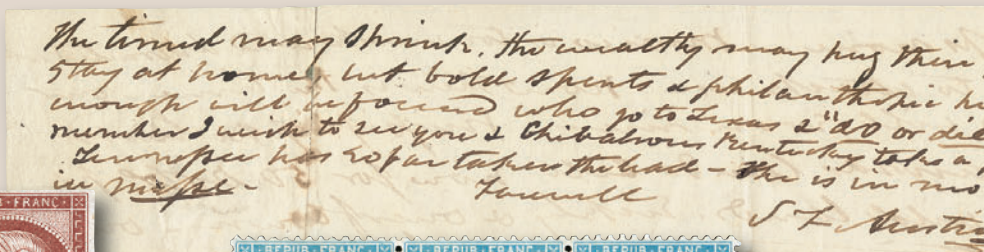 The timid may Shrink. the wealthy may hug their
Stay at home, but bold Spirits & philanthropic
enough will be found who go to Texas & "do or die
member I wish to see you & Chibalrous Kentucky take a
Tennessee has so far taken the lead – She is in mo
in masse –
Farewell
S F Austin
B · FRANC ·
REPUB · FRANC · REPUB · FRANC · REPUB · FRANC ·